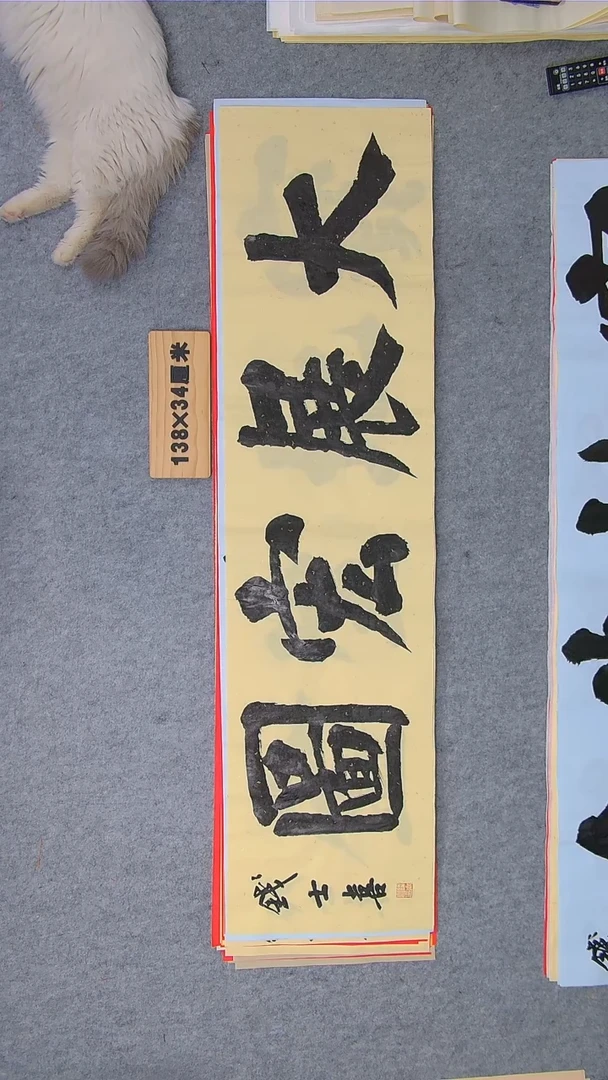 大展宏圖
錢士喜
138×34厘米